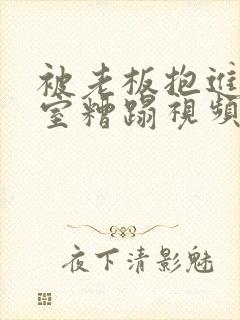 被老板抱進
室糟蹋視頻
夜下清影魅